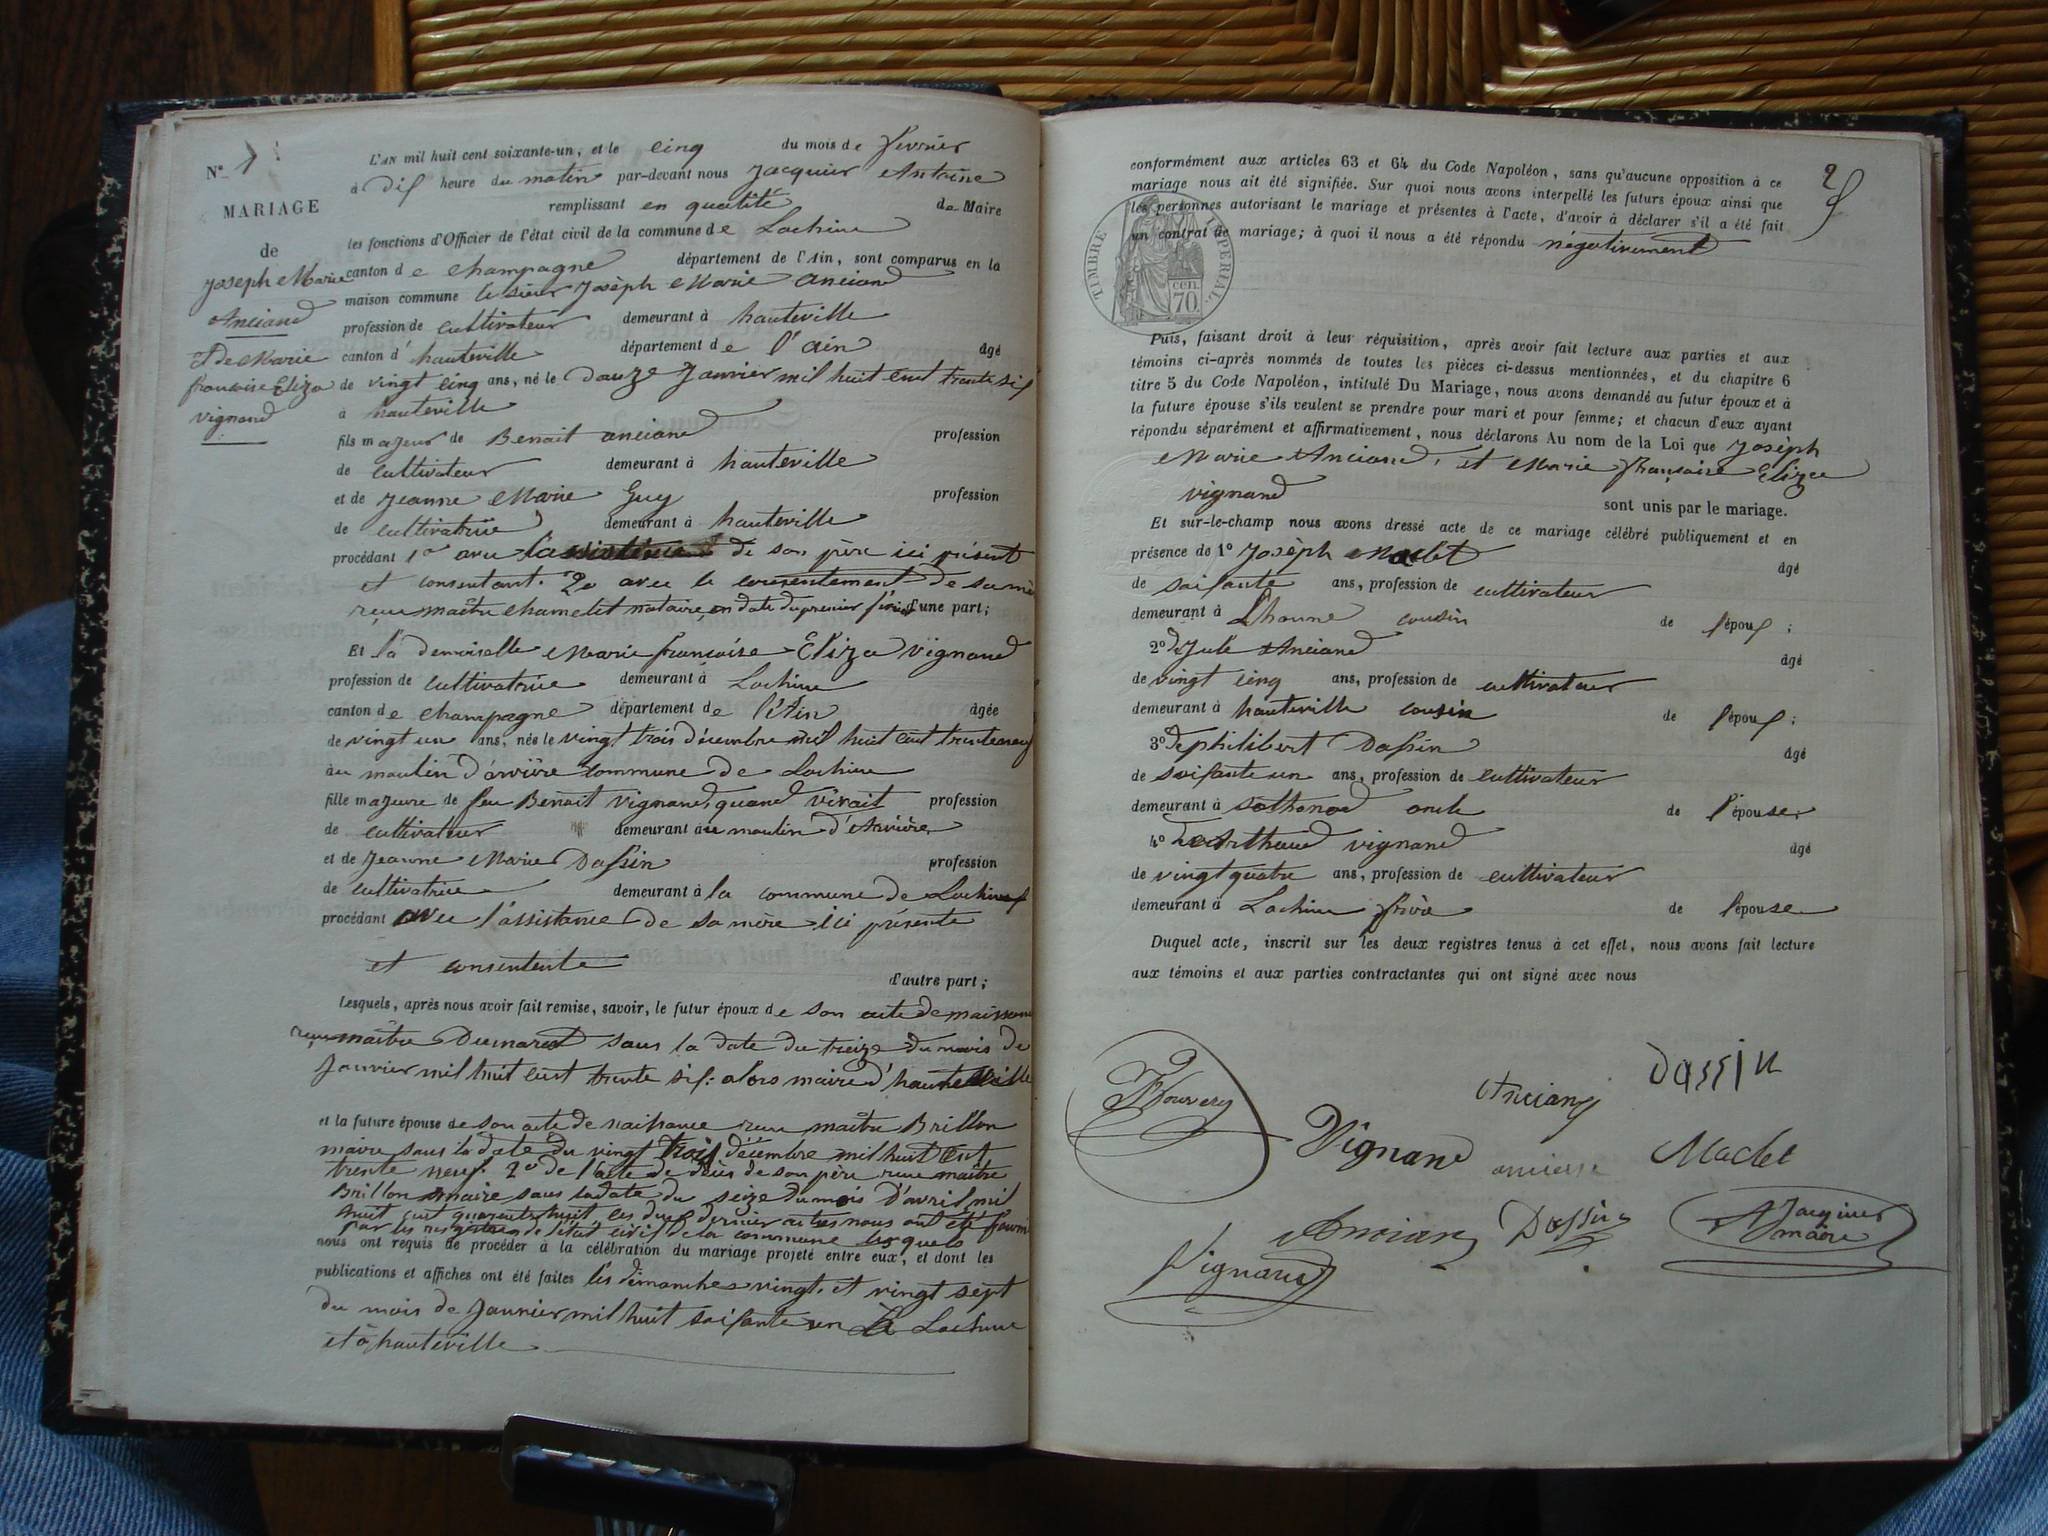 N° 1
MARIAGE
de
Joseph Marie
Anciand
& De Marie
françoise Eliza
vignand
L'AN mil huit cent soixante-un, et le cinq du mois de février
à dix heure du matin par-devant nous Jacquier Antoine
remplissant en qualité de Maire
les fonctions d'Officier de l'état civil de la commune de Lochieu
canton de Champagne département de l'Ain, sont comparus en la
maison commune le sieur Josèph Marie Anciand
profession de cultivateur demeurant à hauteville
canton d' hauteville département de l'ain âgé
de vingt cinq ans, né le douze Janvier mil huit cent trente six
à hauteville
fils majeur de Benoit anciand profession
de cultivateur demeurant à hauteville
et de Jeanne Marie Guy profession
de cultivatrice demeurant à hauteville
procédant 1° avec l'assistance de son père ici présent
et consentant. 2° avec le consentement de sa mère
reçu maître chamelet notaire, en date du premier février d'une part;
Et la demoiselle Marie françoise Eliza vignand
profession de cultivatrice demeurant à Lochieu
canton de Champagne département de l'Ain âgée
de vingt un ans, née le vingt trois décembre mil huit cent trente neuf
au moulin d'arvière commune de Lochieu
fille majeure de feu Benoit Vignand, quand vivait profession
de cultivateur demeurant au moulin d'Arvière
et de Jeanne Marie Dassin profession
de cultivatrice demeurant à la commune de Lochieu
procédant avec l'assistance de sa mère ici présente
et consentente
d'autre part;
Lesquels, après nous avoir fait remise, savoir, le futur époux de son acte de naissance
reçu maître Dumarest sous la date du treize du mois de
Janvier mil huit cent trente six: alors maire d'hauteville
et la future épouse de son acte de naissance reçu maître Brillon
maire sous la date du vingt trois décembre mil huit cent
trente neuf. 2° de l'acte de décès de son père reçu maître
Brillon maire sous la date du seize du mois d'avril mil
huit cent quarente huit les deux dernier actes nous ont été fourni
par les registres de l'état civil de la commune lesquels
nous ont requis de procéder à la célébration du mariage projeté entre eux, et dont les
publications et affiches ont été faites les dimanches vingt, et vingt sept
du mois de Janvier mil huit soixante un à Lochieu
et à hauteville
2
conformément aux articles 63 et 64 du Code Napoléon, sans qu'aucune opposition à ce
mariage nous ait été signifiée. Sur quoi nous avons interpellé les futurs époux ainsi que
les personnes autorisant le mariage et présentes à l'acte, d'avoir à déclarer s'il a été fait
un contrat de mariage; à quoi il nous a été répondu négativement
TIMBRE IMPERIAL
CEN.
70
Puis, faisant droit à leur réquisition, après avoir fait lecture aux parties et aux
témoins ci-après nommés de toutes les pièces ci-dessus mentionnées, et du chapitre 6
titre 5 du Code Napoléon, intitulé Du Mariage, nous avons demandé au futur époux et à
la future épouse s'ils veulent se prendre pour mari et pour femme; et chacun d'eux ayant
répondu séparément et affirmativement, nous déclarons Au nom de la Loi que Josèph
Marie Anciand, et Marie françoise Eliza
vignand sont unis par le mariage.
Et sur-le-champ nous avons dressé acte de ce mariage célébré publiquement et en
présence de 1° Josèph Maclet âgé
de soixante ans, profession de cultivateur
demeurant à cousin de l'époux;
2° de Jule Anciand âgé
de vingt cinq ans, profession de cultivateur
demeurant à hauteville cousin de l'époux;
3° de philibert Dassin âgé
de soixante un ans, profession de cultivateur
demeurant à sothonod oncle de l'épouse
4° de Arthaud vignand âgé
de vingt quatre ans, profession de cultivateur
demeurant à Lochieu frère de l'épouse
Duquel acte, inscrit sur les deux registres tenus à cet effet, nous avons fait lecture
aux témoins et aux parties contractantes qui ont signé avec nous
Anciand Dassin
Vignand Maclet
Anciand Dassin A Jacquier maire
Vignand